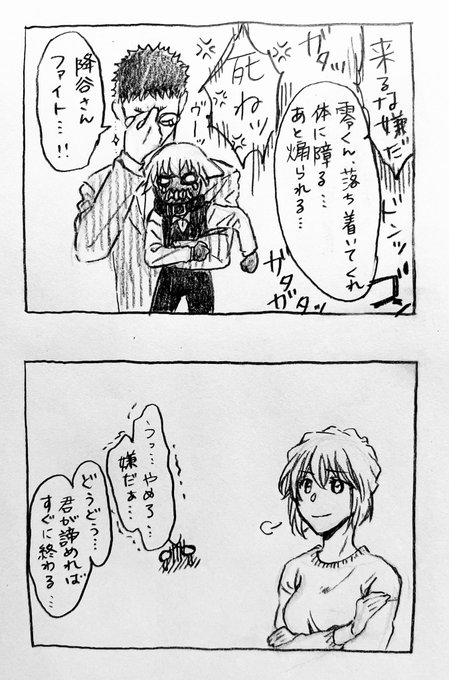 来るな嫌だ
ガタッ
死ねッ
ドンッ
ゴン
零くん、落ち着いてくれ
体に障る…
あと煽られる…
ヴーッ
降谷さん
ファイト…!!
ガタガタッ
うっ…やめろ…
嫌だぁ…
どうどう…
君が諦めれば
すぐに終わる…